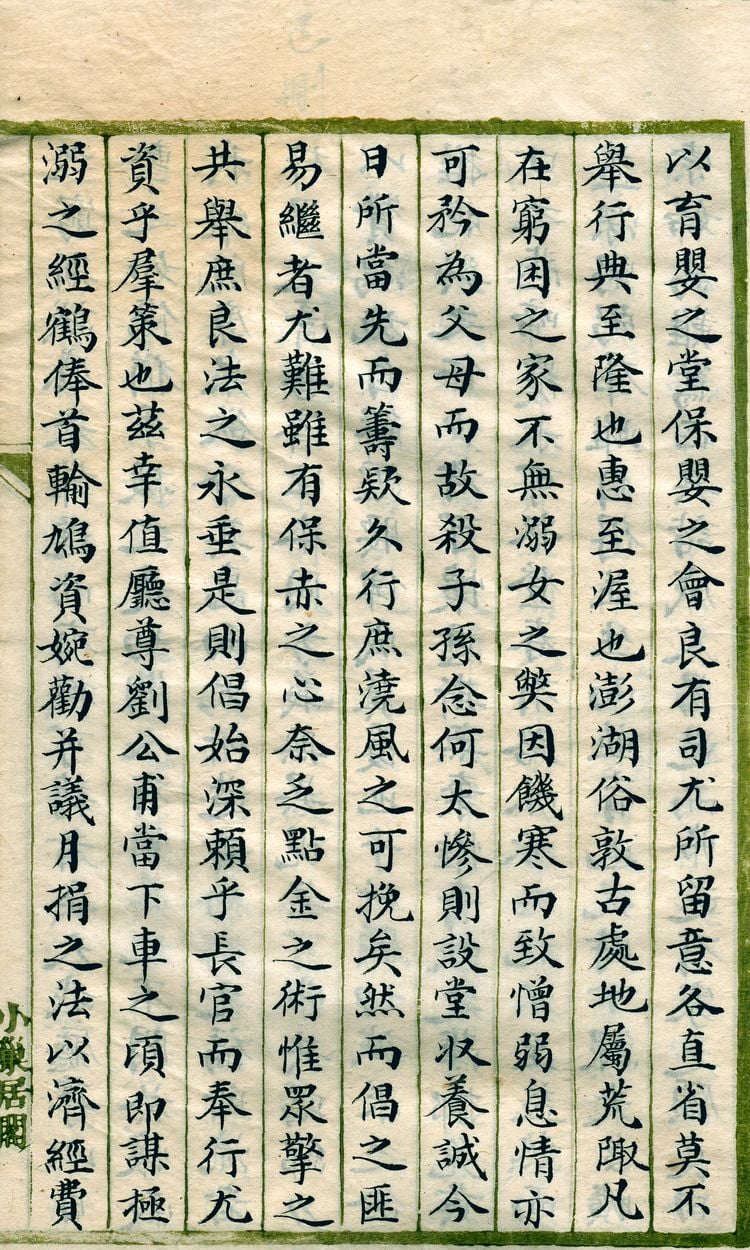 以育嬰之堂保嬰之會良有司尤所留意各直省莫不
舉行典至隆也惠至渥也澎湖俗敦古處地屬荒陬凡
在窮困之家不無溺女之獘因饑寒而致憎弱息情亦
可矜為父母而故殺子孫念何太慘則設堂收養誠今
日所當先而籌欵久行庶澆風之可挽矣然而倡之匪
易繼者尤難雖有保赤之心奈乏點金之術惟眾擎之
共舉庶良法之永垂是則倡始深賴乎長官而奉行尤
資乎羣策也茲幸值廳尊劉公甫當下車之頃即謀極
溺之經鶴俸首輸鳩資婉勸并議月捐之法以濟經費
小巢居閣